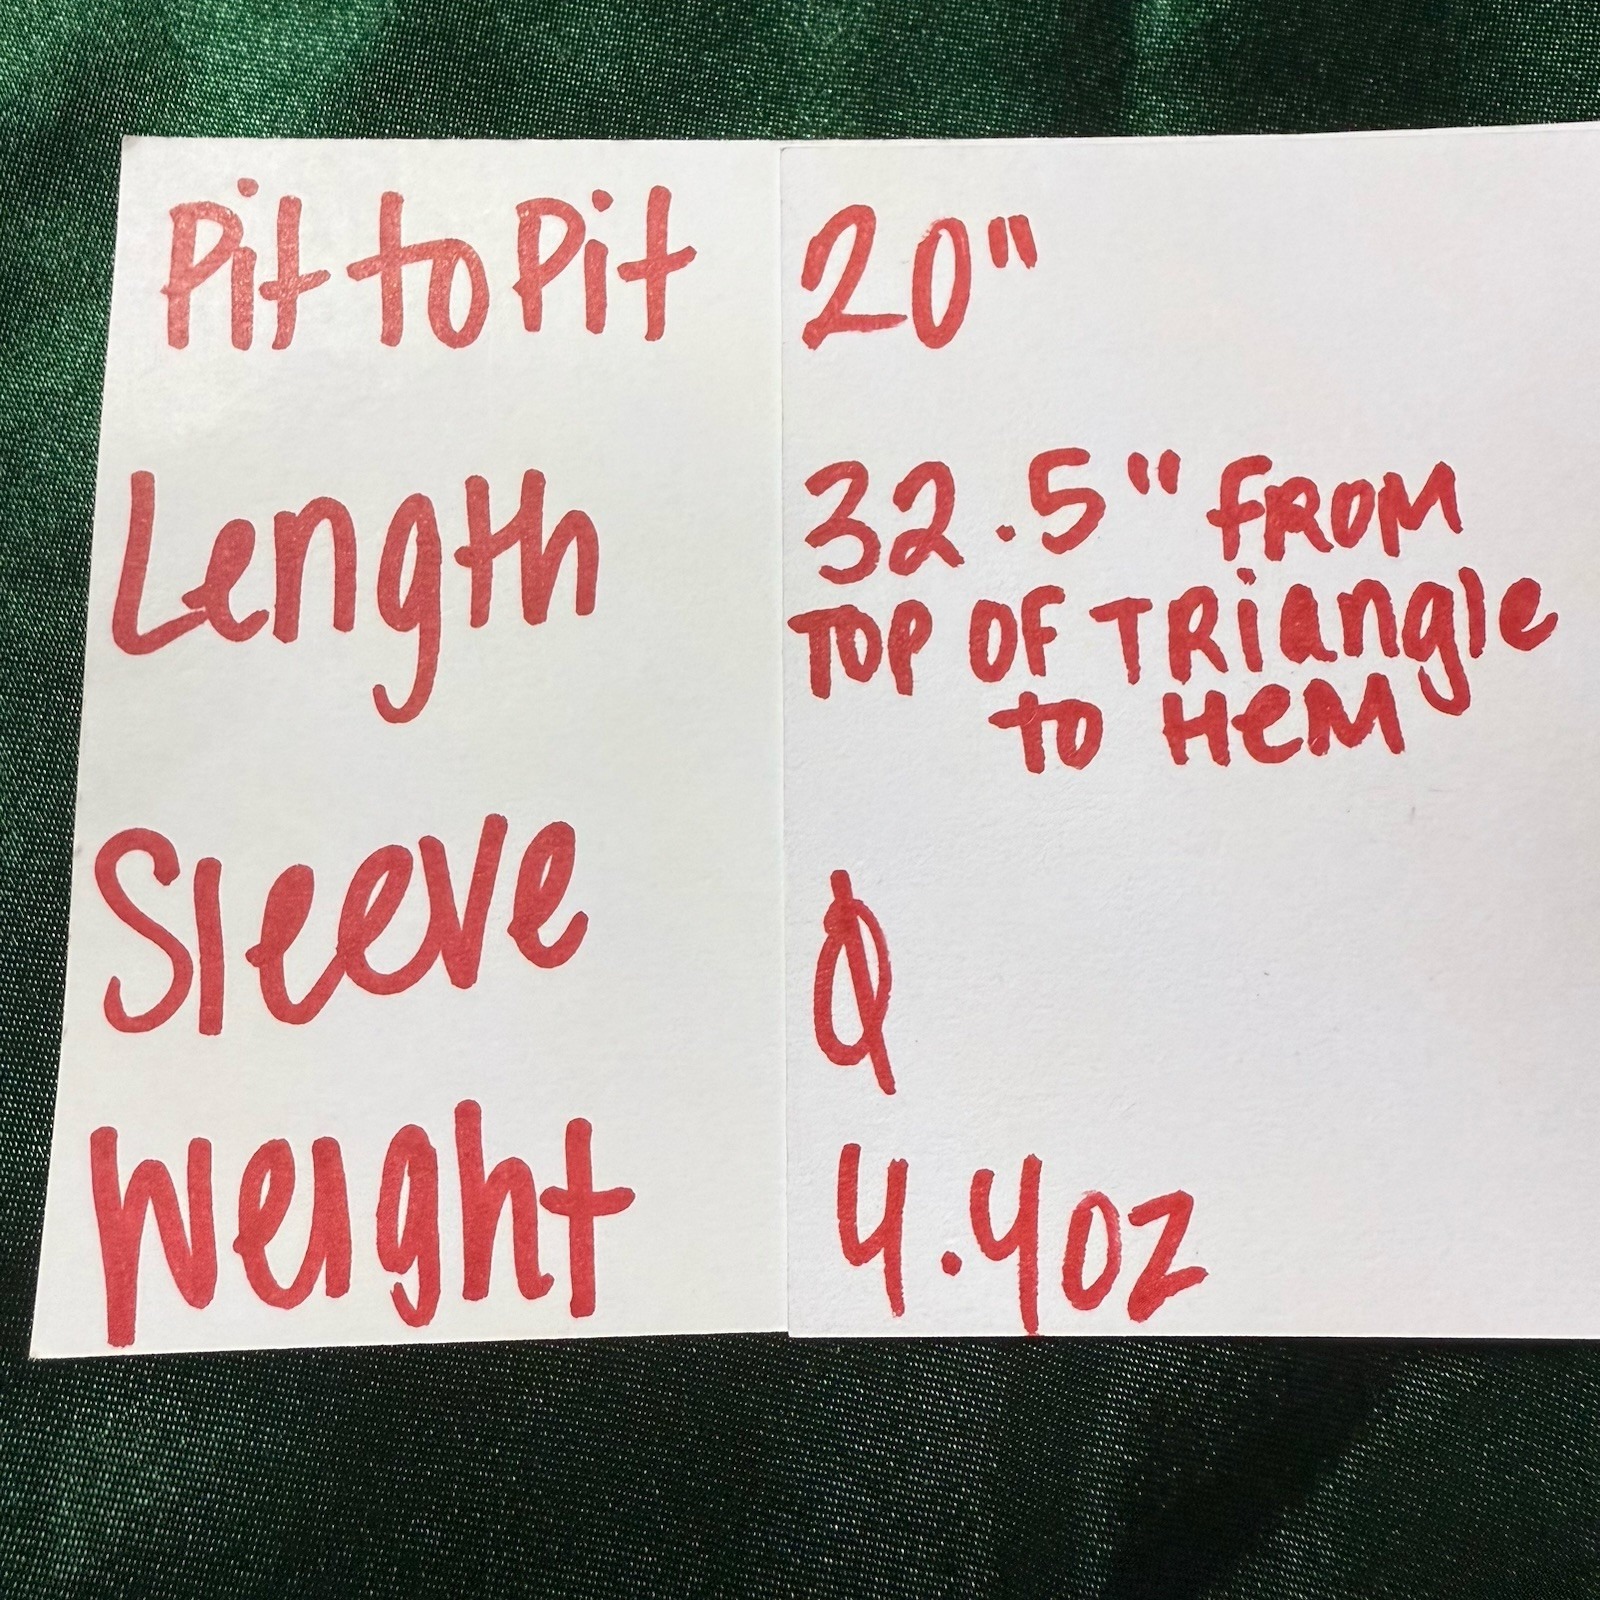 Pit to Pit 20"
Length 32.5" FROM
TOP OF TRiangle
to HeM
Sleeve Ø
Weight 4.4oz